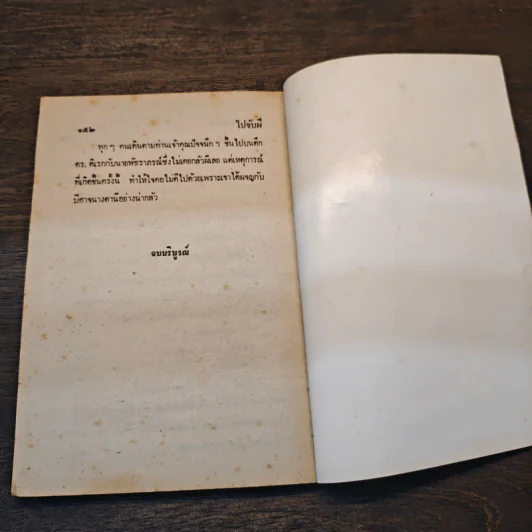 ๑๕๒
ไปจับผี
ทุก ๆ คนเดินตามท่านเจ้าคุณปัจจนึก ฯ ขึ้นไปบนตึก
ดร. ดิเรกกับนายพัชราภรณ์ซึ่งไม่เคยกลัวผีเลย แต่เหตุการณ์
ที่เกิดขึ้นครั้งนี้ ทำให้ใจคอไม่ดีไปด้วยเพราะเขาได้ผจญกับ
ปีศาจนางตานีอย่างน่ากลัว
จบบริบูรณ์